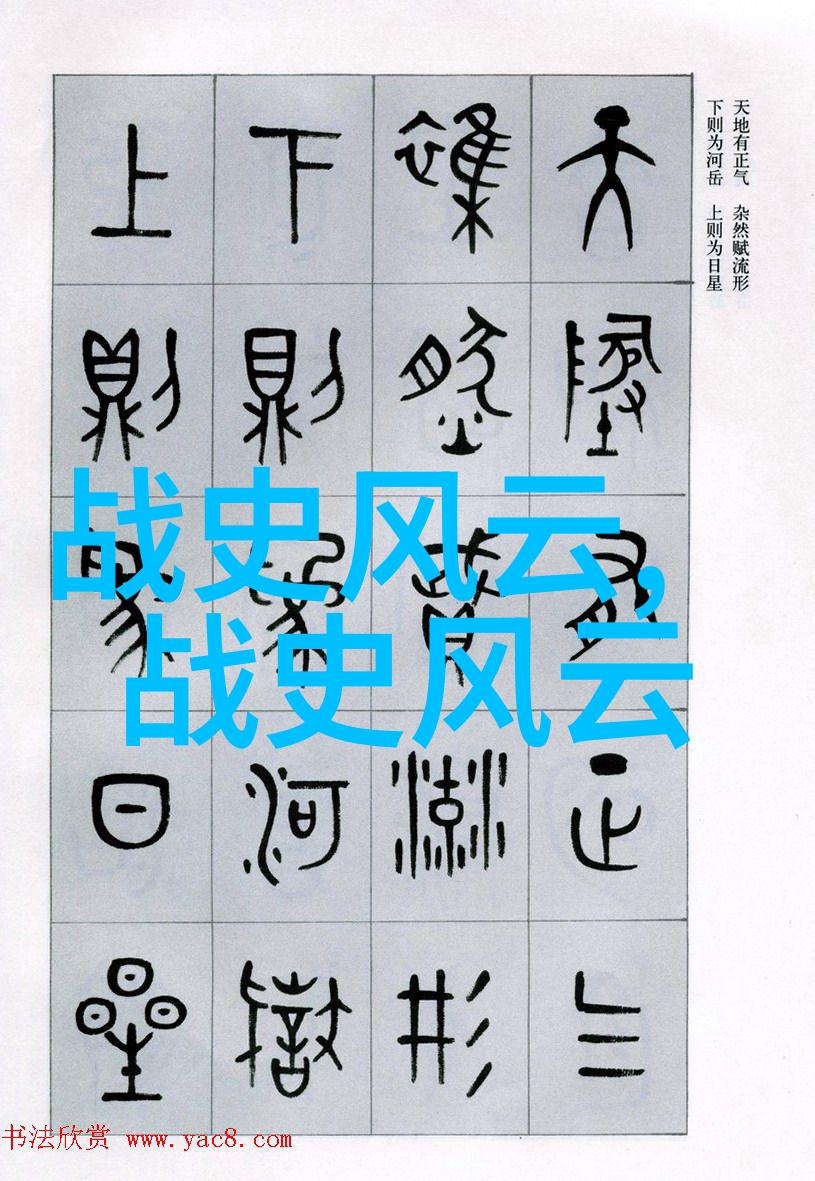 天地有正气 杂然赋流形
下则为河岳 上则为日星
天地有正气
雜然賦流形
下則為河嶽
上則為日星
战史风云,
战史风云
书法欣赏 www.yac8.com